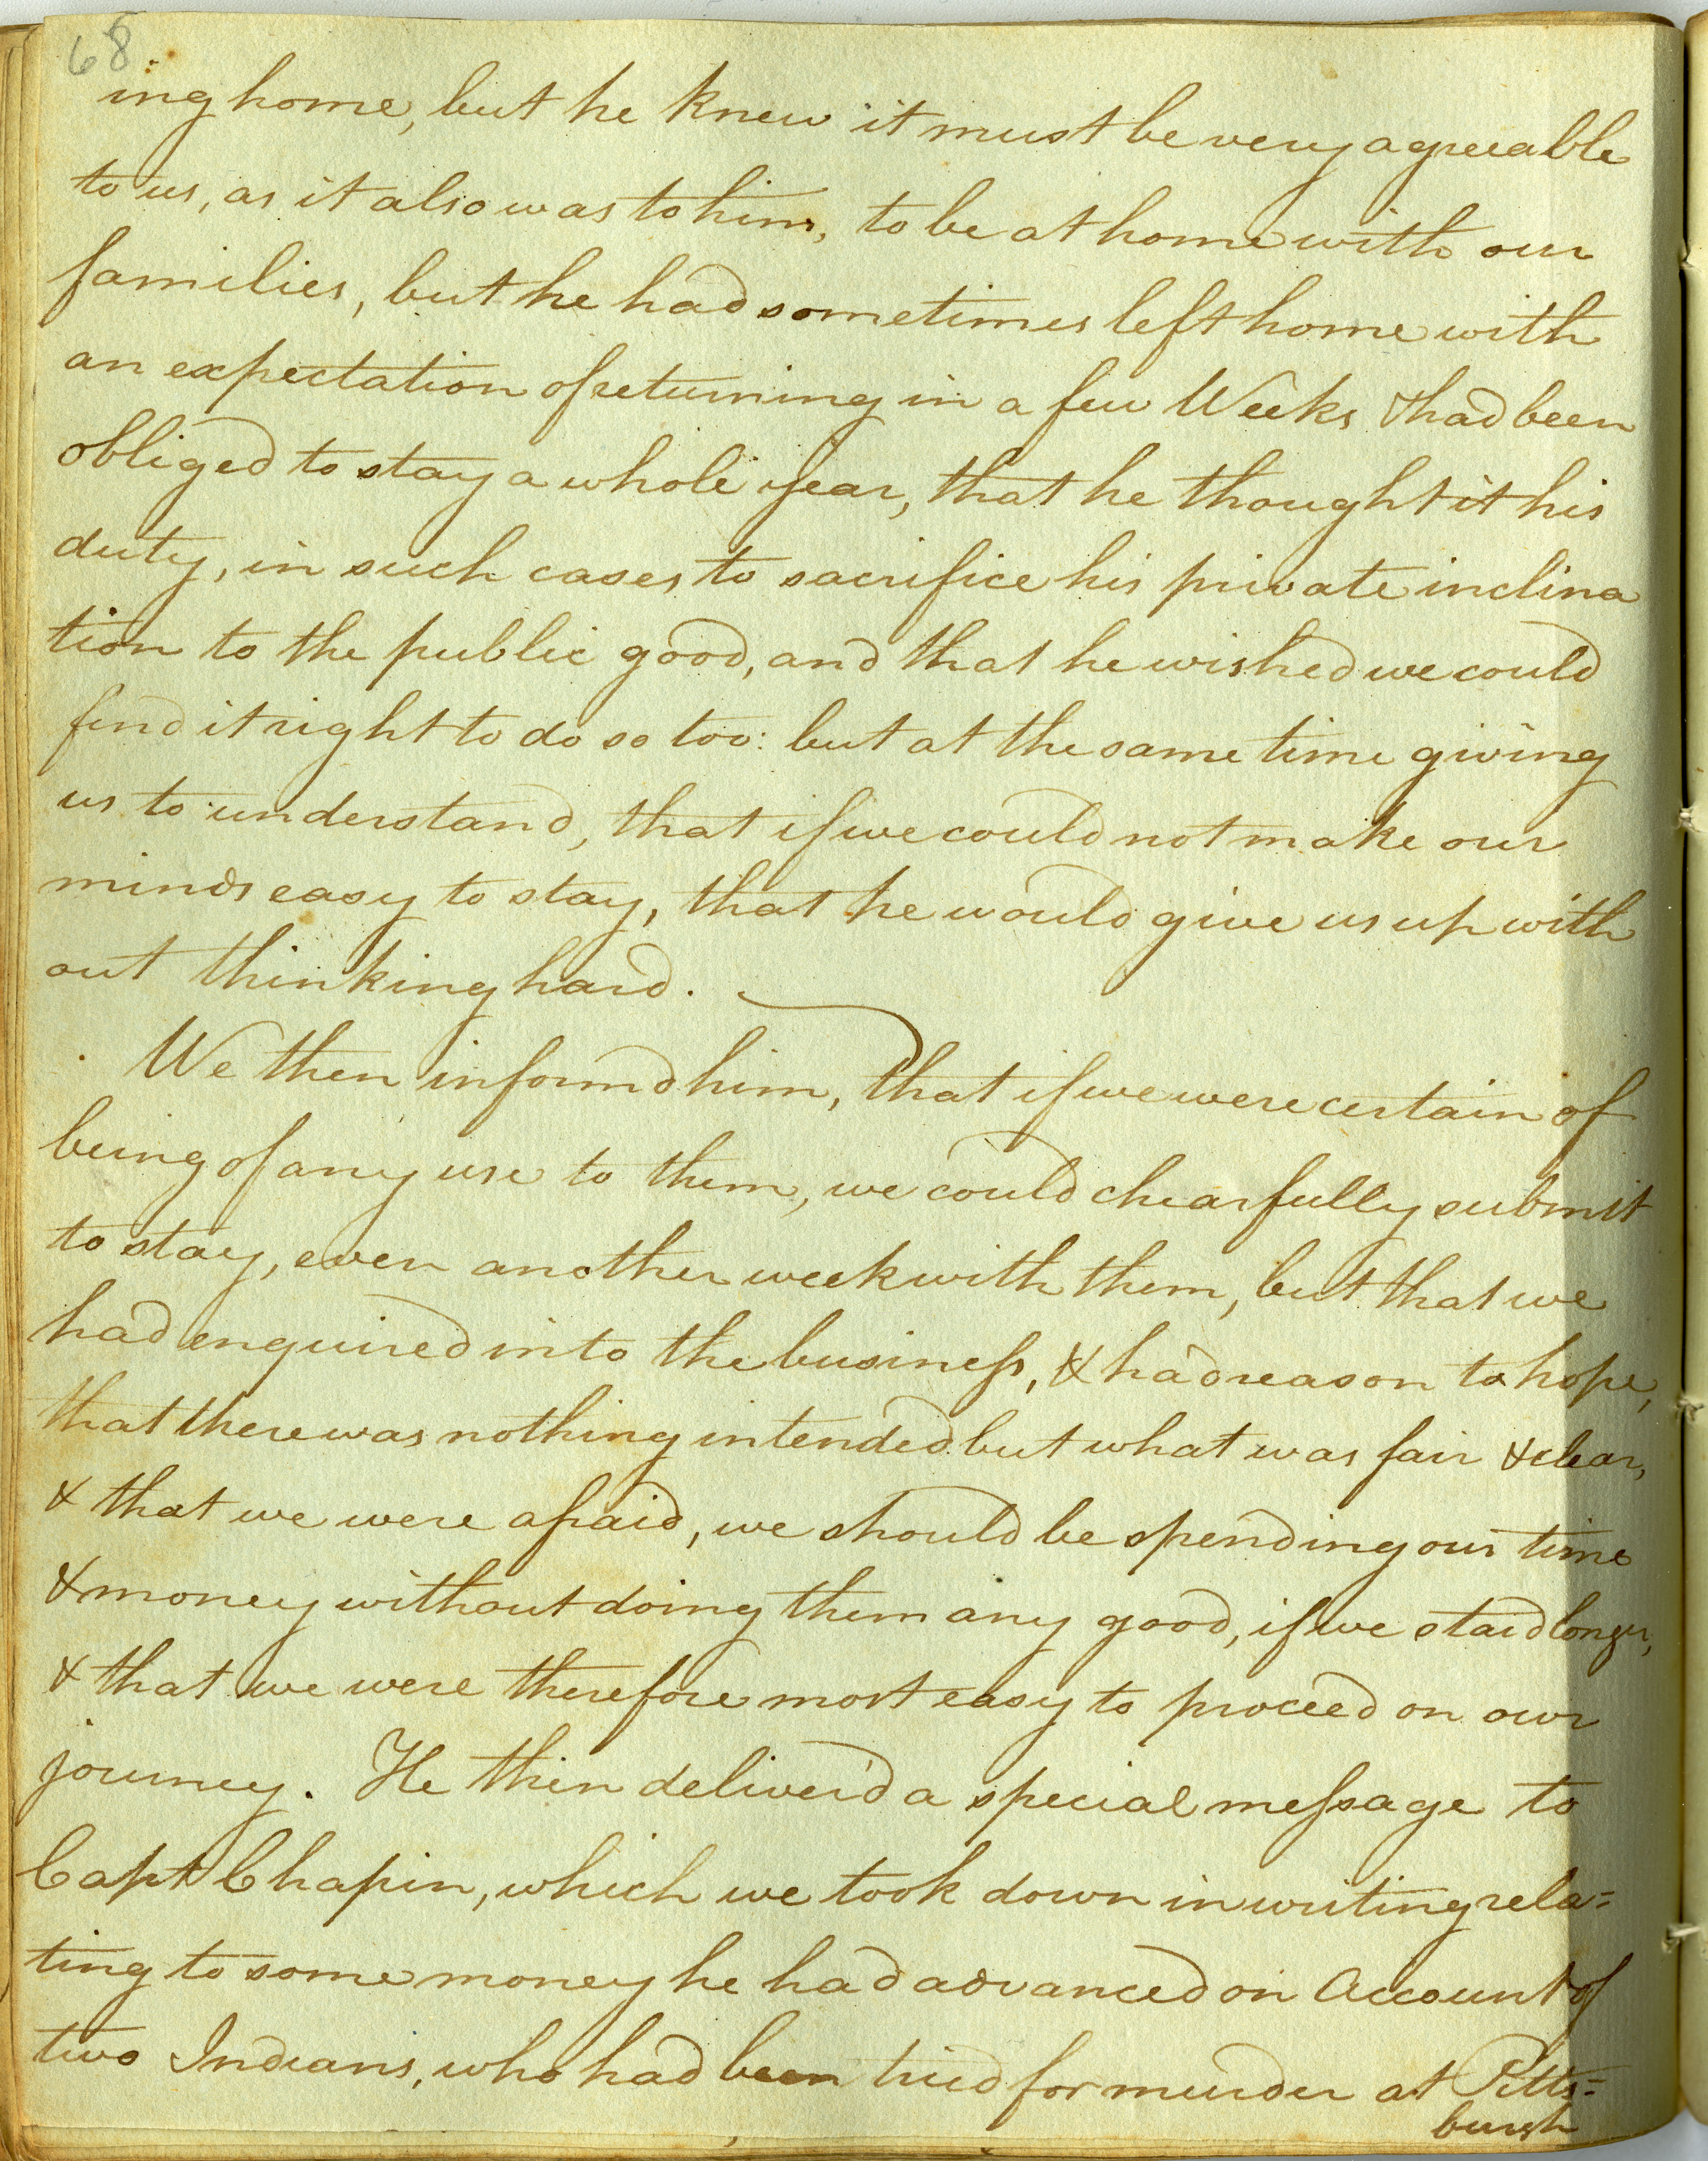 68
ing home, but he knew it must be very agreeable
to us, as it also was to him, to be at home with our
families, but he had sometimes left home with
an expectation of returning in a few Weeks & had been
obliged to stay a whole year, that he thought it his
duty, in such cases, to sacrifice his private inclina
tion to the public good, and that he wished we could
find it right to do so too: but at the same time giving
us to understand, that if we could not make our
minds easy to stay, that he would give us up with
out thinking hard.
We then informd him, that if we were certain of
being of any use to them, we could chearfully submit
to stay, even another week with them, but that we
had enquired into the business, & had reason to hope,
that there was nothing intended but what was fair & clear,
& that we were afraid, we should be spending our time
& money without doing them any good, if we staid longer,
& that we were therefore most easy to proceed on our
journey. He then deliver'd a special message to
Capt Chapin, which we took down in writing rela=
ting to some money he had advanced on Account of
two Indians, who had been tried for murder at Pitts=
burgh